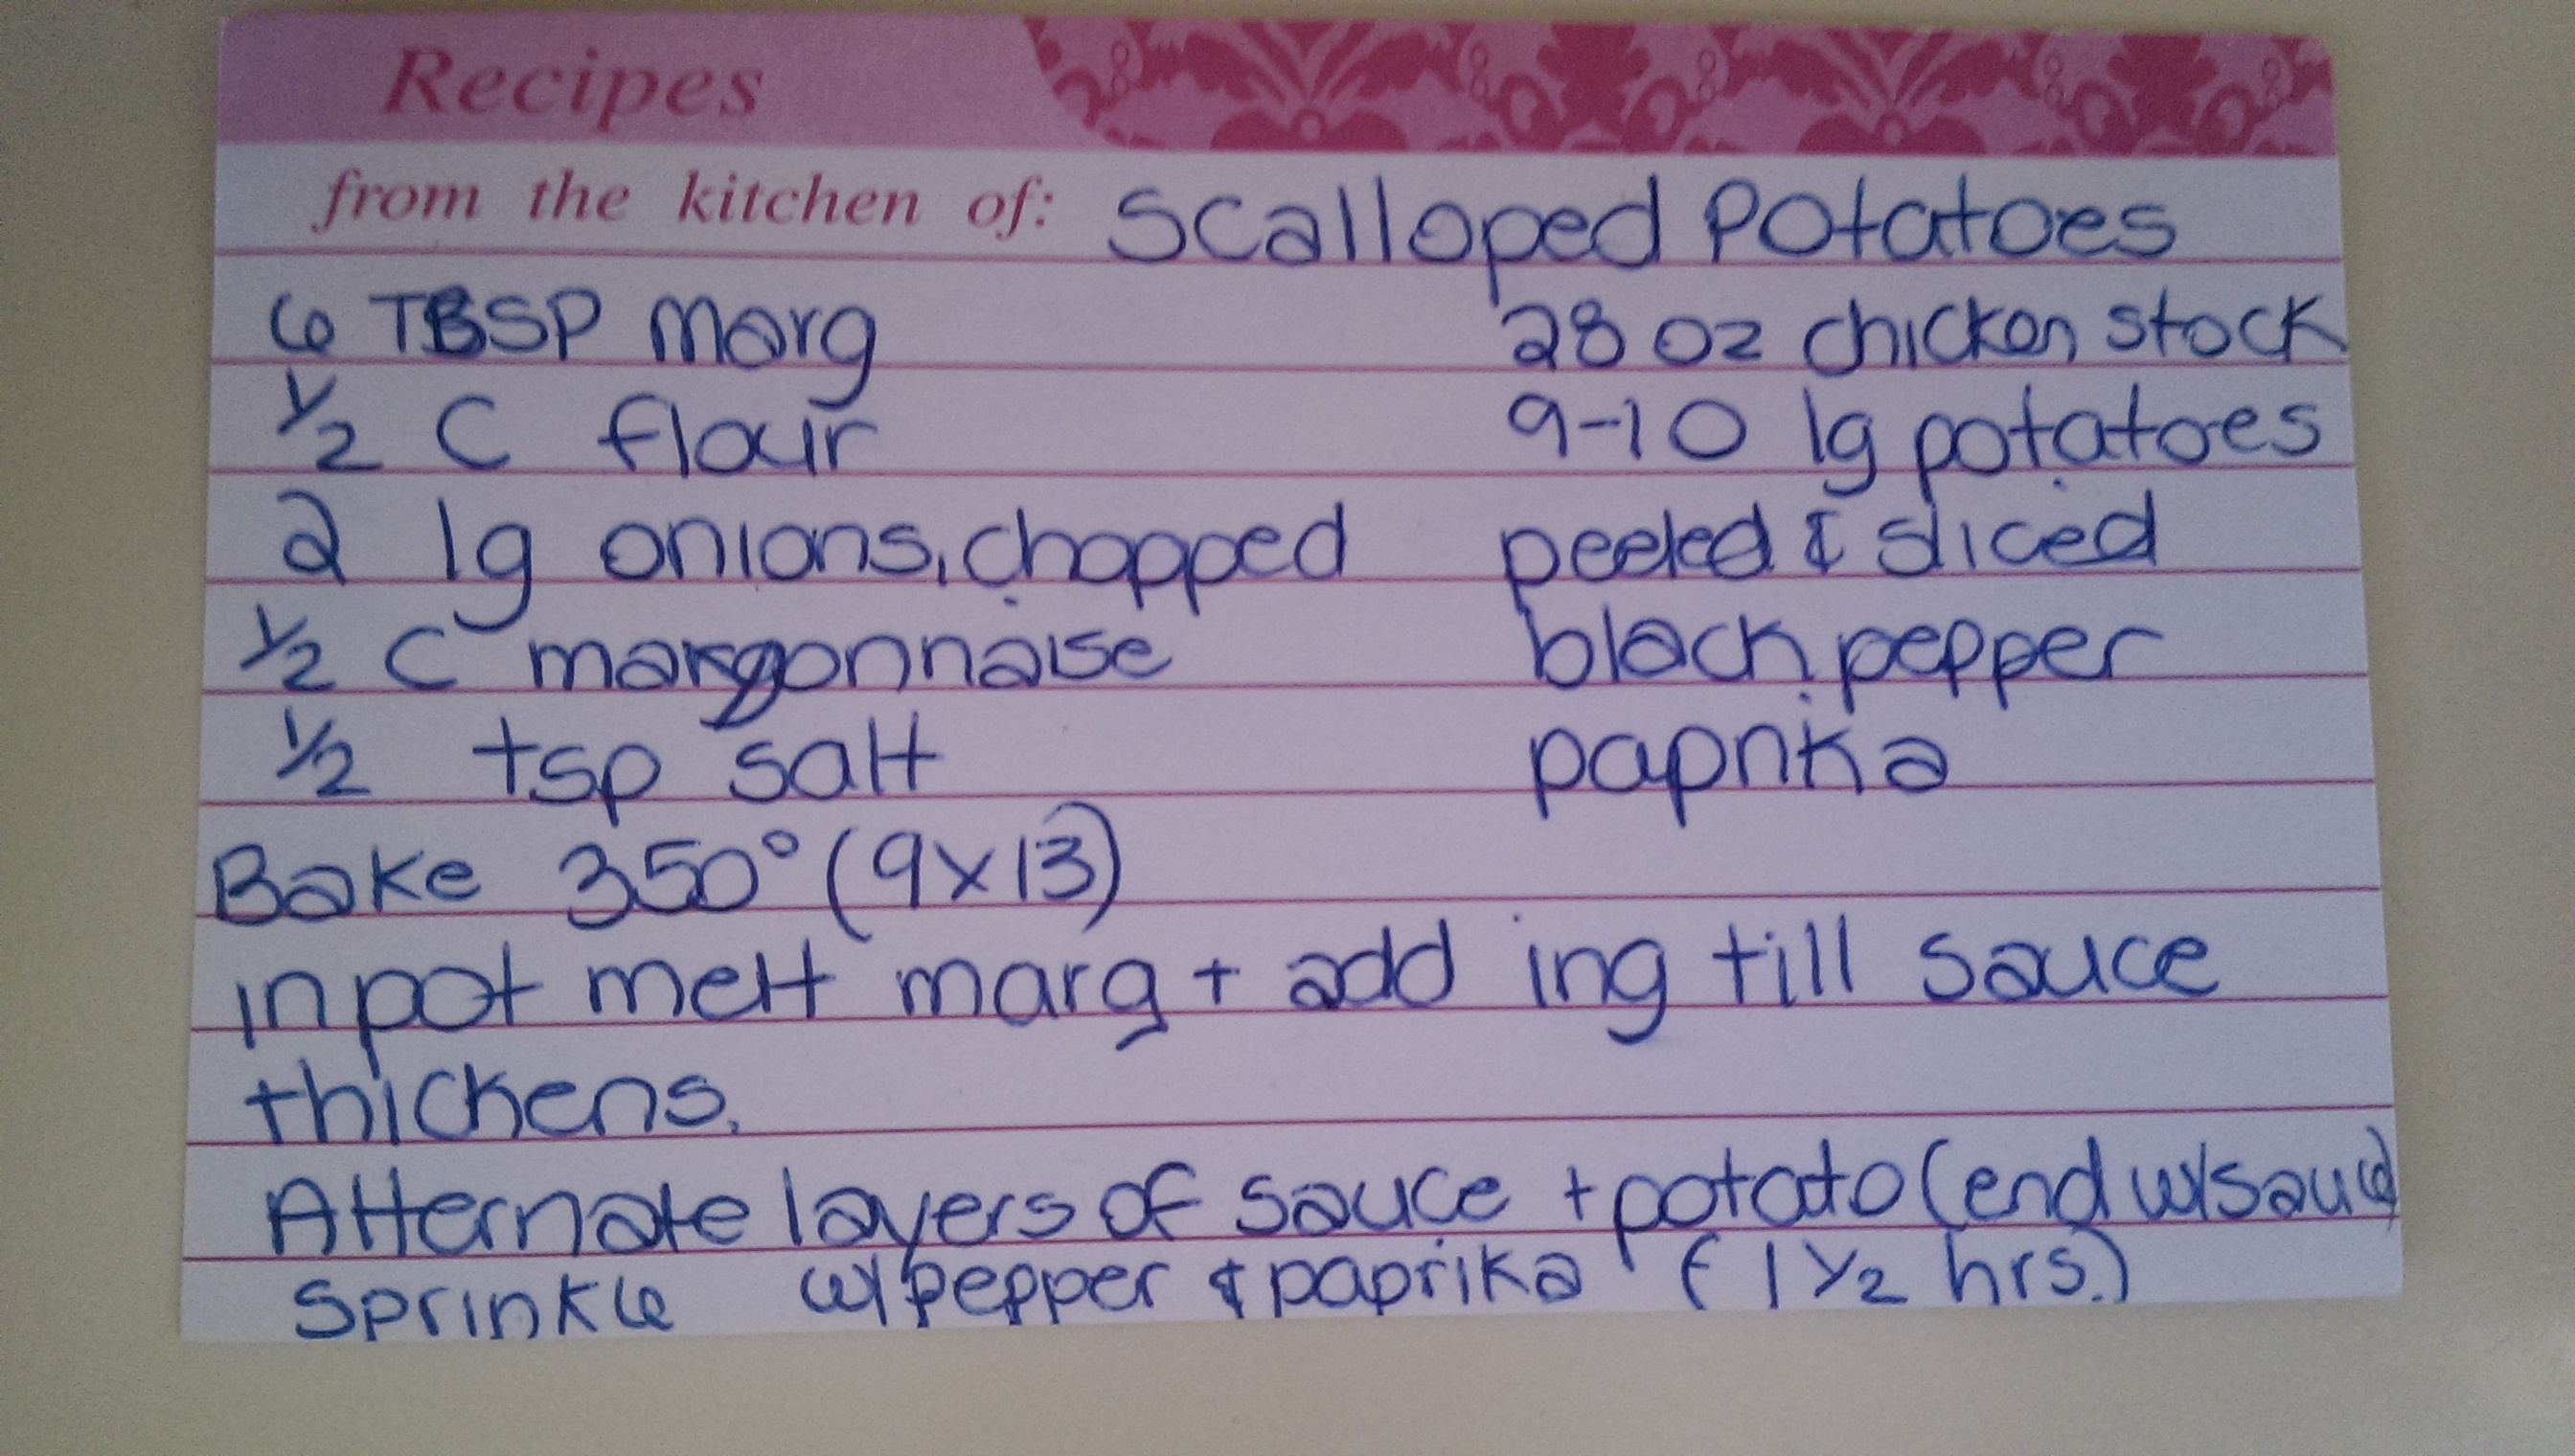 Recipes
from the kitchen of: Scalloped Potatoes
6 TBSP marg
½ C flour
2 lg onions, chopped
½ C
½ tsp salt
28 oz chicken stock
9-10 lg potatoes
peeled & sliced
black pepper
paprika
Bake 350° (9x13)
in pot melt marg + add ing till sauce
thickens.
Alternate layers of sauce + potato (end w/sauce)
Sprinkle w/pepper & paprika (1 ½ hrs.)